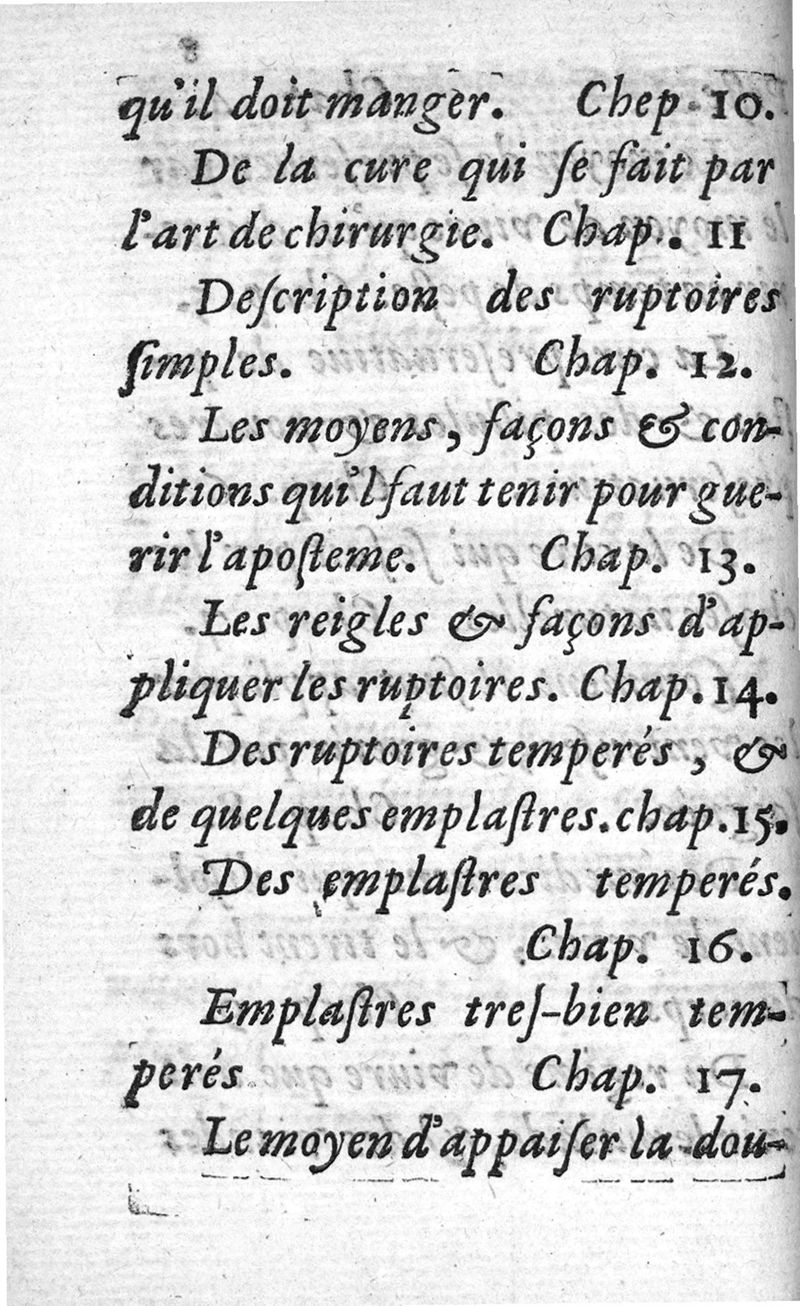 qu'il doit manger. Chep. 10.
De la cure qui ſe fait par
l'art de chirurgie. Chap. 11
Deſcription des ruptoires
ſimples. Chap. 12.
Les moyens, façons & con-
ditions qui'l faut tenir pour gue-
rir l'apoſteme. Chap. 13.
Les reigles & façons d'ap-
pliquer les ruptoires. Chap. 14.
Des ruptoires temperés, &
de quelques emplaſtres. chap. 15.
Des emplaſtres temperés.
Chap. 16.
Emplaſtres treſ-bien tem-
perés Chap. 17.
Le moyen d'appaiſer la dou-